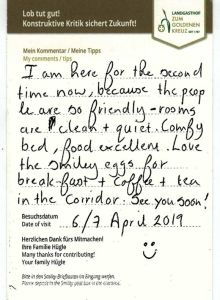 Lob tut gut!
Konstruktive Kritik sichert Zukunft!
LANDGASTHOF
ZUM
GOLDENEN
KREUZ
Mein Kommentar / Meine Tipps
My comments / tips
I am here for the second
time now, because the peop
le are so friendly - rooms
are clean + quiet. Comfy
bed, food excellent. Love
the smiley eggs for
breakfast + Coffee + tea
in the Corridor. See you soon!
Besuchsdatum
Date of visit
6/7 April 2019
Herzlichen Dank fürs Mitmachen!
Ihre Familie Hügle
Many thanks for contributing!
Your family Hügle
Bitte in den Smiley-Briefkasten im Eingang werfen.
Please deposit in the Smiley post box in the entrance.